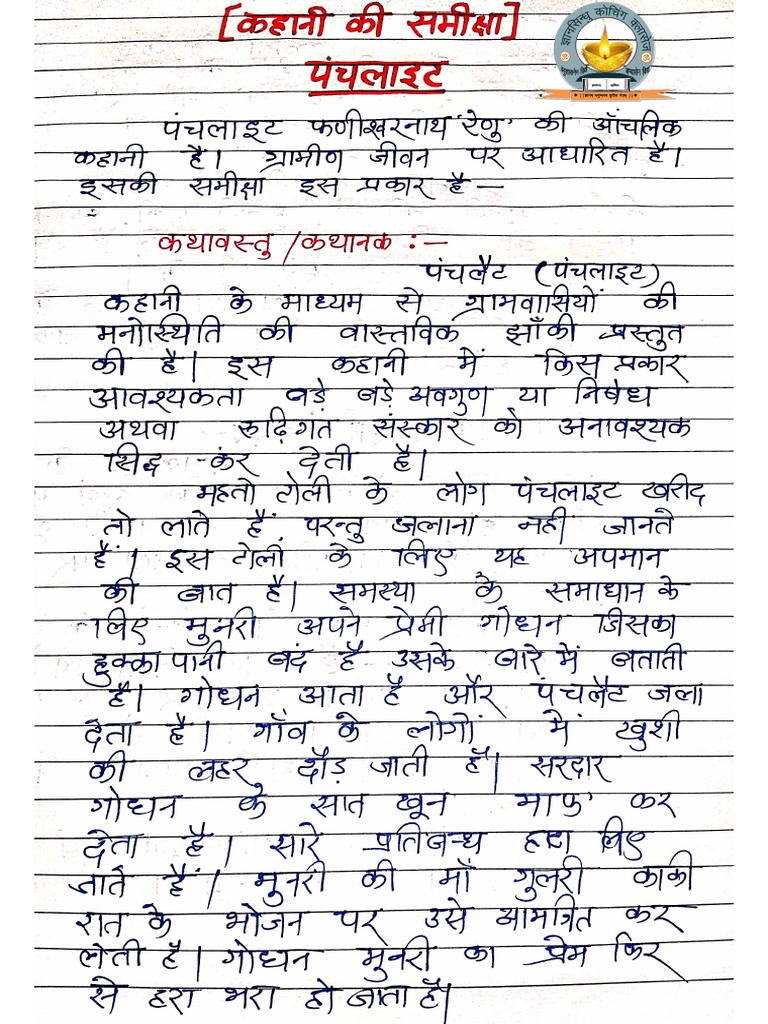 [कहानी की समीक्षा]
ज्ञानसिन्धु कोचिंग क्लासेज
पंचलाइट
पंचलाइट फणीश्वरनाथ 'रेणु' की आँचलिक
कहानी है। ग्रामीण जीवन पर आधारित है।
इसकी समीक्षा इस प्रकार है —
कथावस्तु /कथानक :—
पंचलैट (पंचलाइट)
कहानी के माध्यम से ग्रामवासियों की
मनोस्थिति की वास्तविक झाँकी प्रस्तुत
की है। इस कहानी में किस प्रकार
आवश्यकता बड़े बड़े अवगुण या निषेध
अथवा रूढ़िगत संस्कार को अनावश्यक
सिद्ध कर देती है।
महतो टोली के लोग पंचलाइट खरीद
तो लाते हैं परन्तु जलाना नही जानते
हैं। इस टोली के लिए यह अपमान
की बात है। समस्या के समाधान के
लिए मुनरी अपने प्रेमी गोधन जिसका
हुक्का पानी बंद है उसके बारे में बताती
है। गोधन आता है और पंचलैट जला
देता है। गाँव के लोगों में खुशी
की लहर दौड़ जाती है। सरदार
गोधन के सात खून 'माफ' कर
देता है। सारे प्रतिबन्ध हटा लिए
जाते हैं। मुनरी की माँ गुलरी काकी
रात के भोजन पर उसे आमंत्रित कर
लेती है। गोधन मुनरी का प्रेम फिर
से हरा भरा हो जाता है।